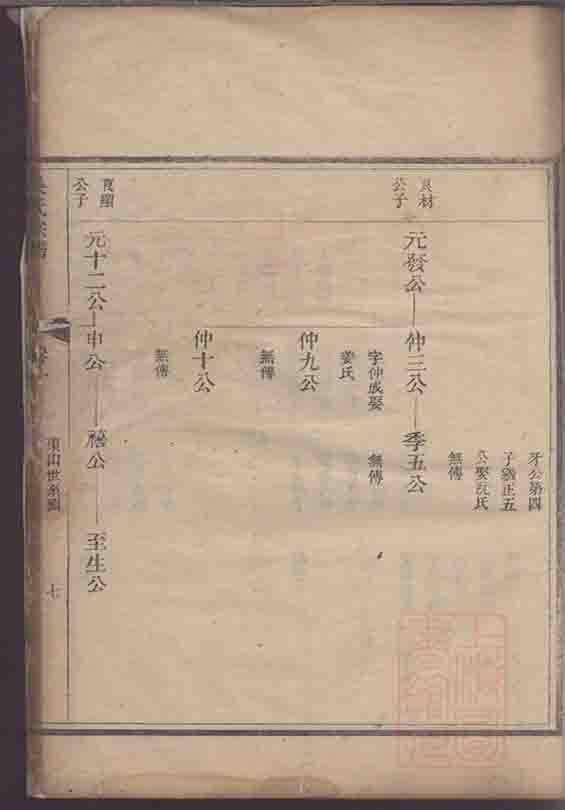 牙公第四
子猶正五
公娶沈氏
無傳
良材
公子
元發公
仲三公
季五公
字仲成娶
姜氏
無傳
仲九公
無傳
仲十公
無傳
公子
元十二公
申公
禧公
至生公
東山世系圖
七